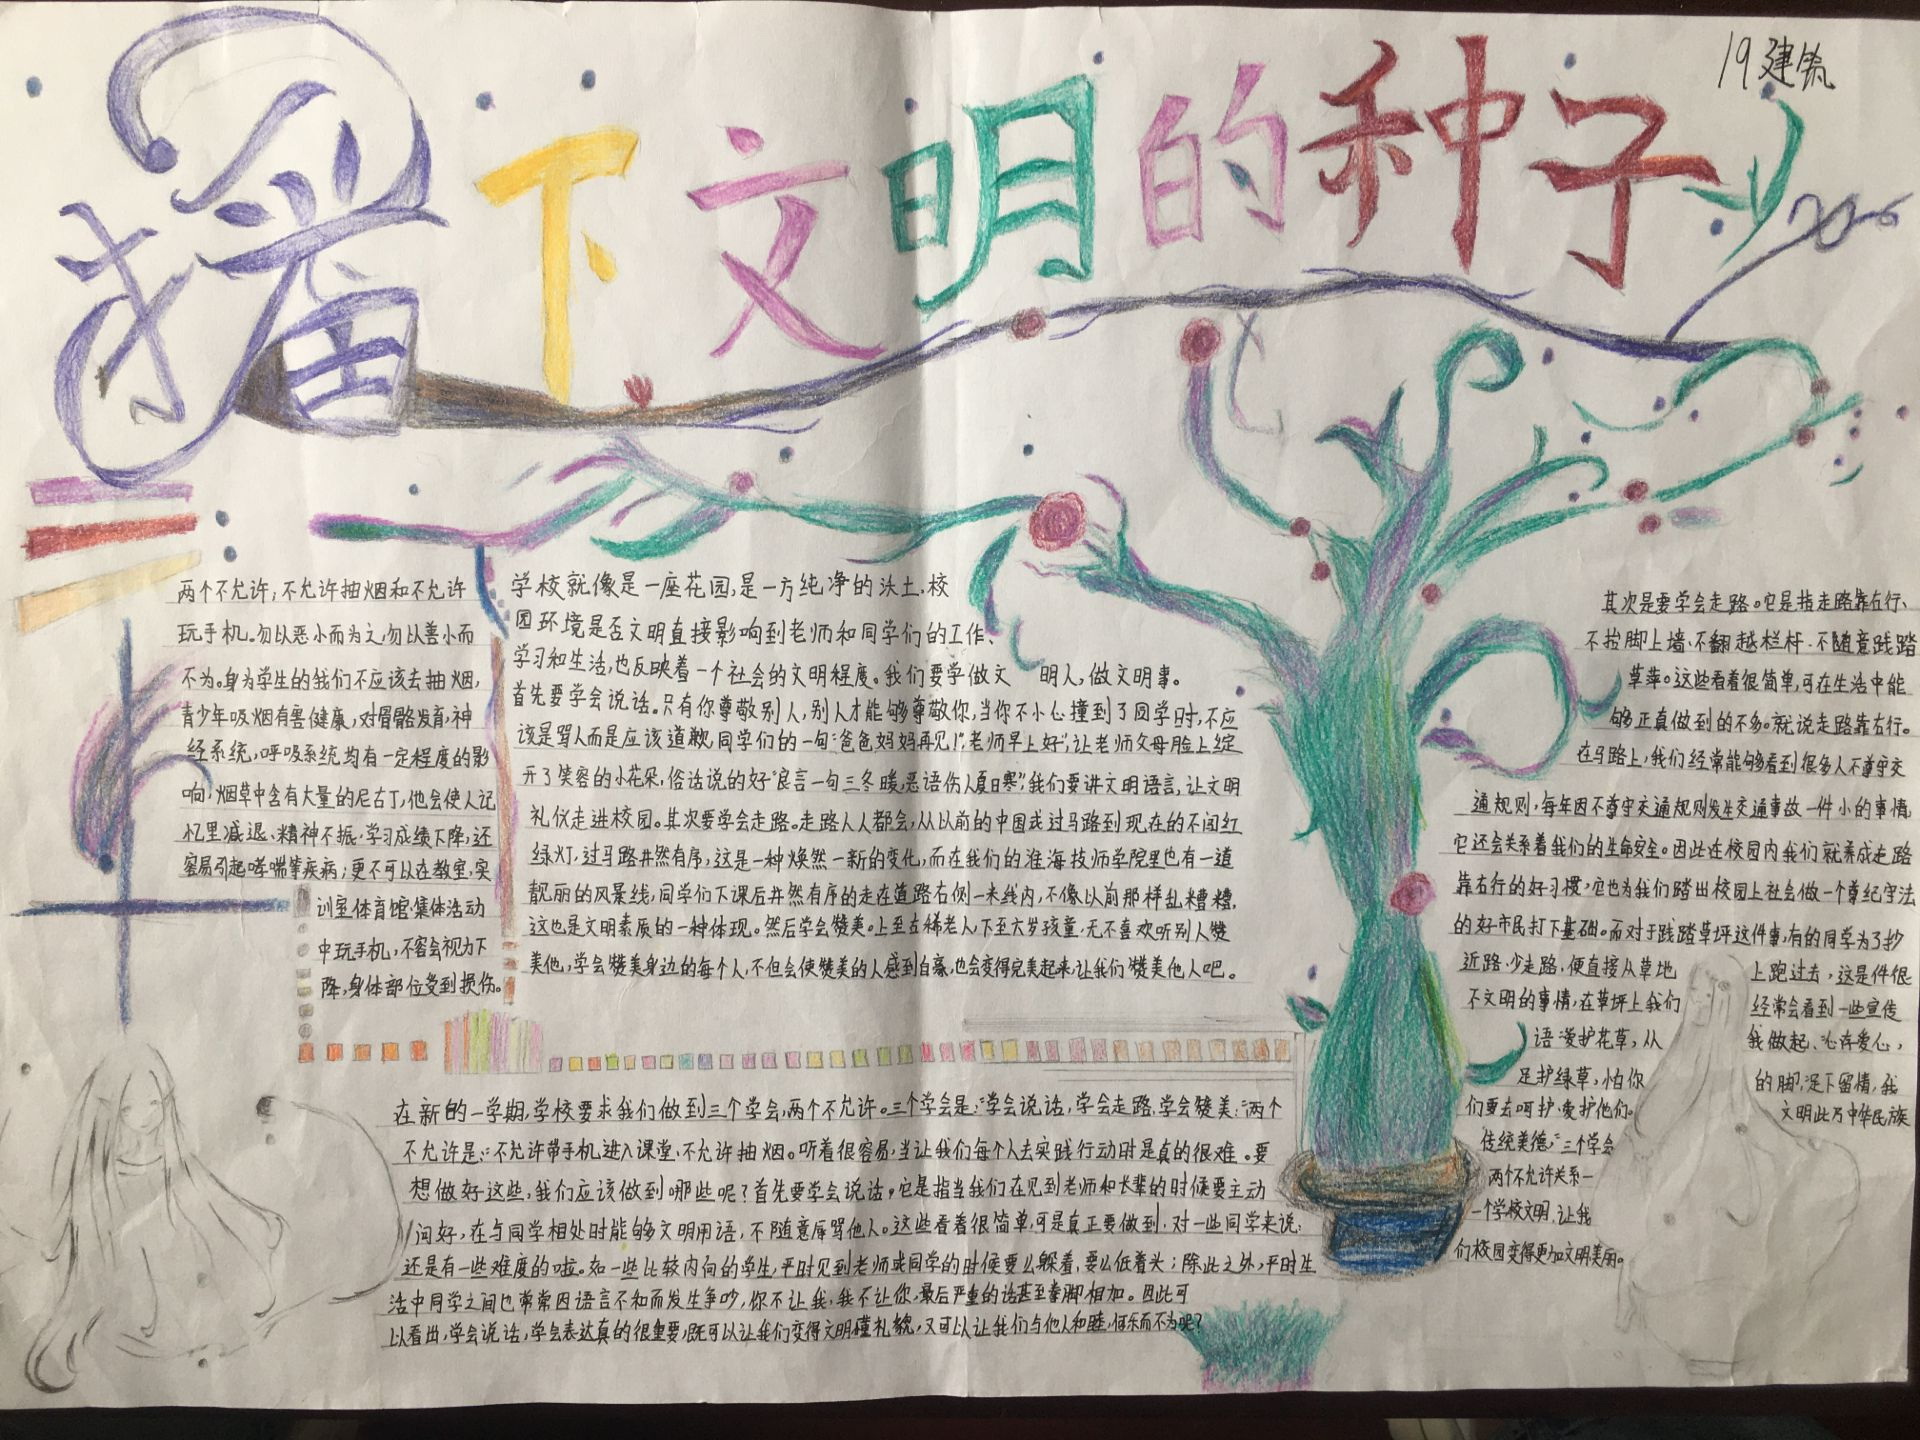 播下文明的种子
19建筑
两个不允许；不允许抽烟和不允许
玩手机。勿以恶小而为之，勿以善小而
不为。身为学生的我们不应该去抽烟，
青少年吸烟有害健康，对骨骼发育，神
经系统，呼吸系统均有一定程度的影
响，烟草中含有大量的尼古丁，他会使人记
忆里减退、精神不振，学习成绩下降，还
容易引起哮喘等疾病；更不可以在教室，实
训室体育馆集体活动
中玩手机，不容会视力下
降，身体部位受到损伤。
学校就像是一座花园，是一方纯净的沃土，校
园环境是否文明直接影响到老师和同学们的工作、
学习和生活，也反映着一个社会的文明程度。我们要学做文 明人，做文明事。
首先要学会说话。只有你尊敬别人，别人才能够尊敬你，当你不小心撞到了同学时，不应
该是骂人而是应该道歉，同学们的一句"爸爸妈妈再见！"，"老师早上好"，让老师父母脸上绽
开了笑容的小花朵，俗话说的好"良言一句三冬暖，恶语伤人夏日寒"，我们要讲文明语言，让文明
礼仪走进校园。其次要学会走路。走路人人都会，从以前的中国式过马路到现在的不闯红
绿灯，过马路井然有序，这是一种焕然一新的变化，而在我们的淮海技师学院里也有一道
靓丽的风景线，同学们下课后井然有序的走在道路右侧一米线内，不像以前那样乱糟糟，
这也是文明素质的一种体现。然后学会赞美。上至古稀老人，下至大岁孩童，无不喜欢听别人赞
美他，学会赞美身边的每个人，不但会使赞美的人感到自豪，也会变得完美起来，让我们赞美他人吧。
在新的一学期，学校要求我们做到三个学会，两个不允许。三个学会是："学会说话，学会走路，学会赞美；"两个
不允许是："不允许带手机进入课堂，不允许抽烟。听着很容易，当让我们每个人去实践行动时是真的很难。要
想做好这些，我们应该做到哪些呢？首先要学会说话，它是指当我们在见到老师和长辈的时候要主动
问好，在与同学相处时能够文明用语，不随意辱骂他人。这些看着很简单，可是真正要做到，对一些同学来说；
还是有一些难度的啦。如一些比较内向的学生，平时见到老师或同学的时候要么躲着，要么低着头；除此之外，平时生
活中同学之间也常常因语言不和而发生争吵，你不让我，我不让你，最后严重的话甚至拳脚相加。因此可
以看出，学会说话，学会表达真的很重要，既可以让我们变得文明懂礼貌，又可以让我们与他人和睦，何乐而不为呢？
其次是要学会走路。它是指走路靠右行、
不按脚上墙、不翻越栏杆、不随意践踏
草萍。这些看着很简单，可在生活中能
够正真做到的不多。就说走路靠右行。
在马路上，我们经常能够看到很多人不尊守交
通规则，每年因不尊守交通规则发生交通事故一件小的事情，
它还会关系着我们的生命安全。因此在校园内我们就养成走路
靠右行的好习惯，它也为我们踏出校园上社会做一个尊纪守法
的好市民打下基础。而对于践踏草坪这件事，有的同学为了抄
近路，少走路，便直接从草地 上跑过去，这是件很
不文明的事情，在草坪上我们 经常会看到一些宣传
语"爱护花草，从 我做起、心存爱心，
足护绿草，怕你 的脚，足下留情，我
们要去呵护爱护他们。 文明此乃中华民族
传统美德，"三个学会
两个不允许关系一
一个学校文明，让我
们校园变得更加文明美丽。